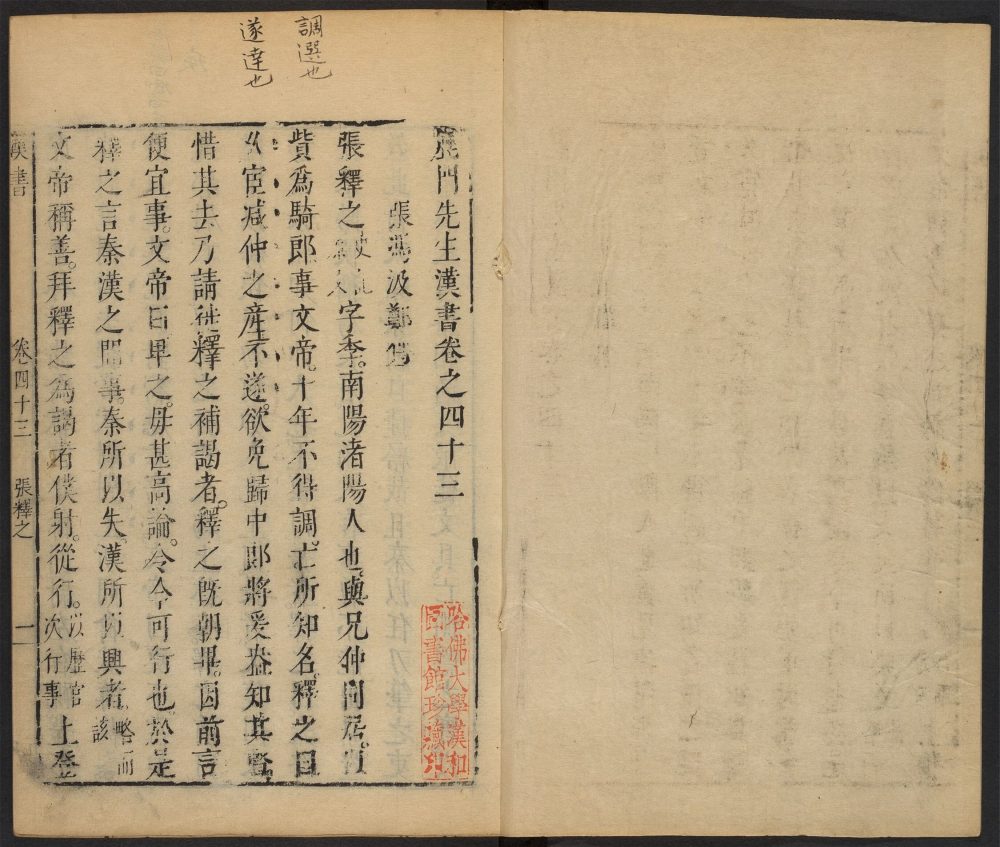 調選也
遂達也
鹿門先生漢書卷之四十三
張馮汲鄭傳
張釋之字季。南陽渚陽人也與兄仲同居。
貲為騎郎事文帝。十年不得調。亡所知名。釋之曰
久宦减仲之産不遂。欲免歸中郎將爰盎知其賢。
惜其去乃請徙釋之補謁者。釋之既朝畢。因前言
便宜事。文帝曰卑之。毋甚高論。令今可行也。於是
釋之言秦漢之間事。秦所以失。漢所以興者。略而該
文帝稱善。拜釋之為謁者僕射。從行。以歷官次行事上登
漢書
卷四十三
張釋之
一
哈佛大學漢和
圖書館珍藏印